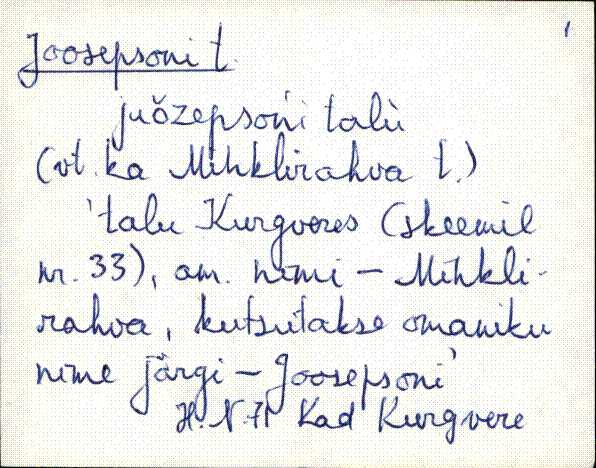 Joosepsoni t.
juŏzepsońi talù
(vt. ka Mihklirahva t.)
'talu Kurgveres (skeemil
nr. 33), am. nimi - Mihkli-
rahva, kutsutakse omaniku
nime järgi - Joosepsoni'
H. N. 71 Kad Kurgvere